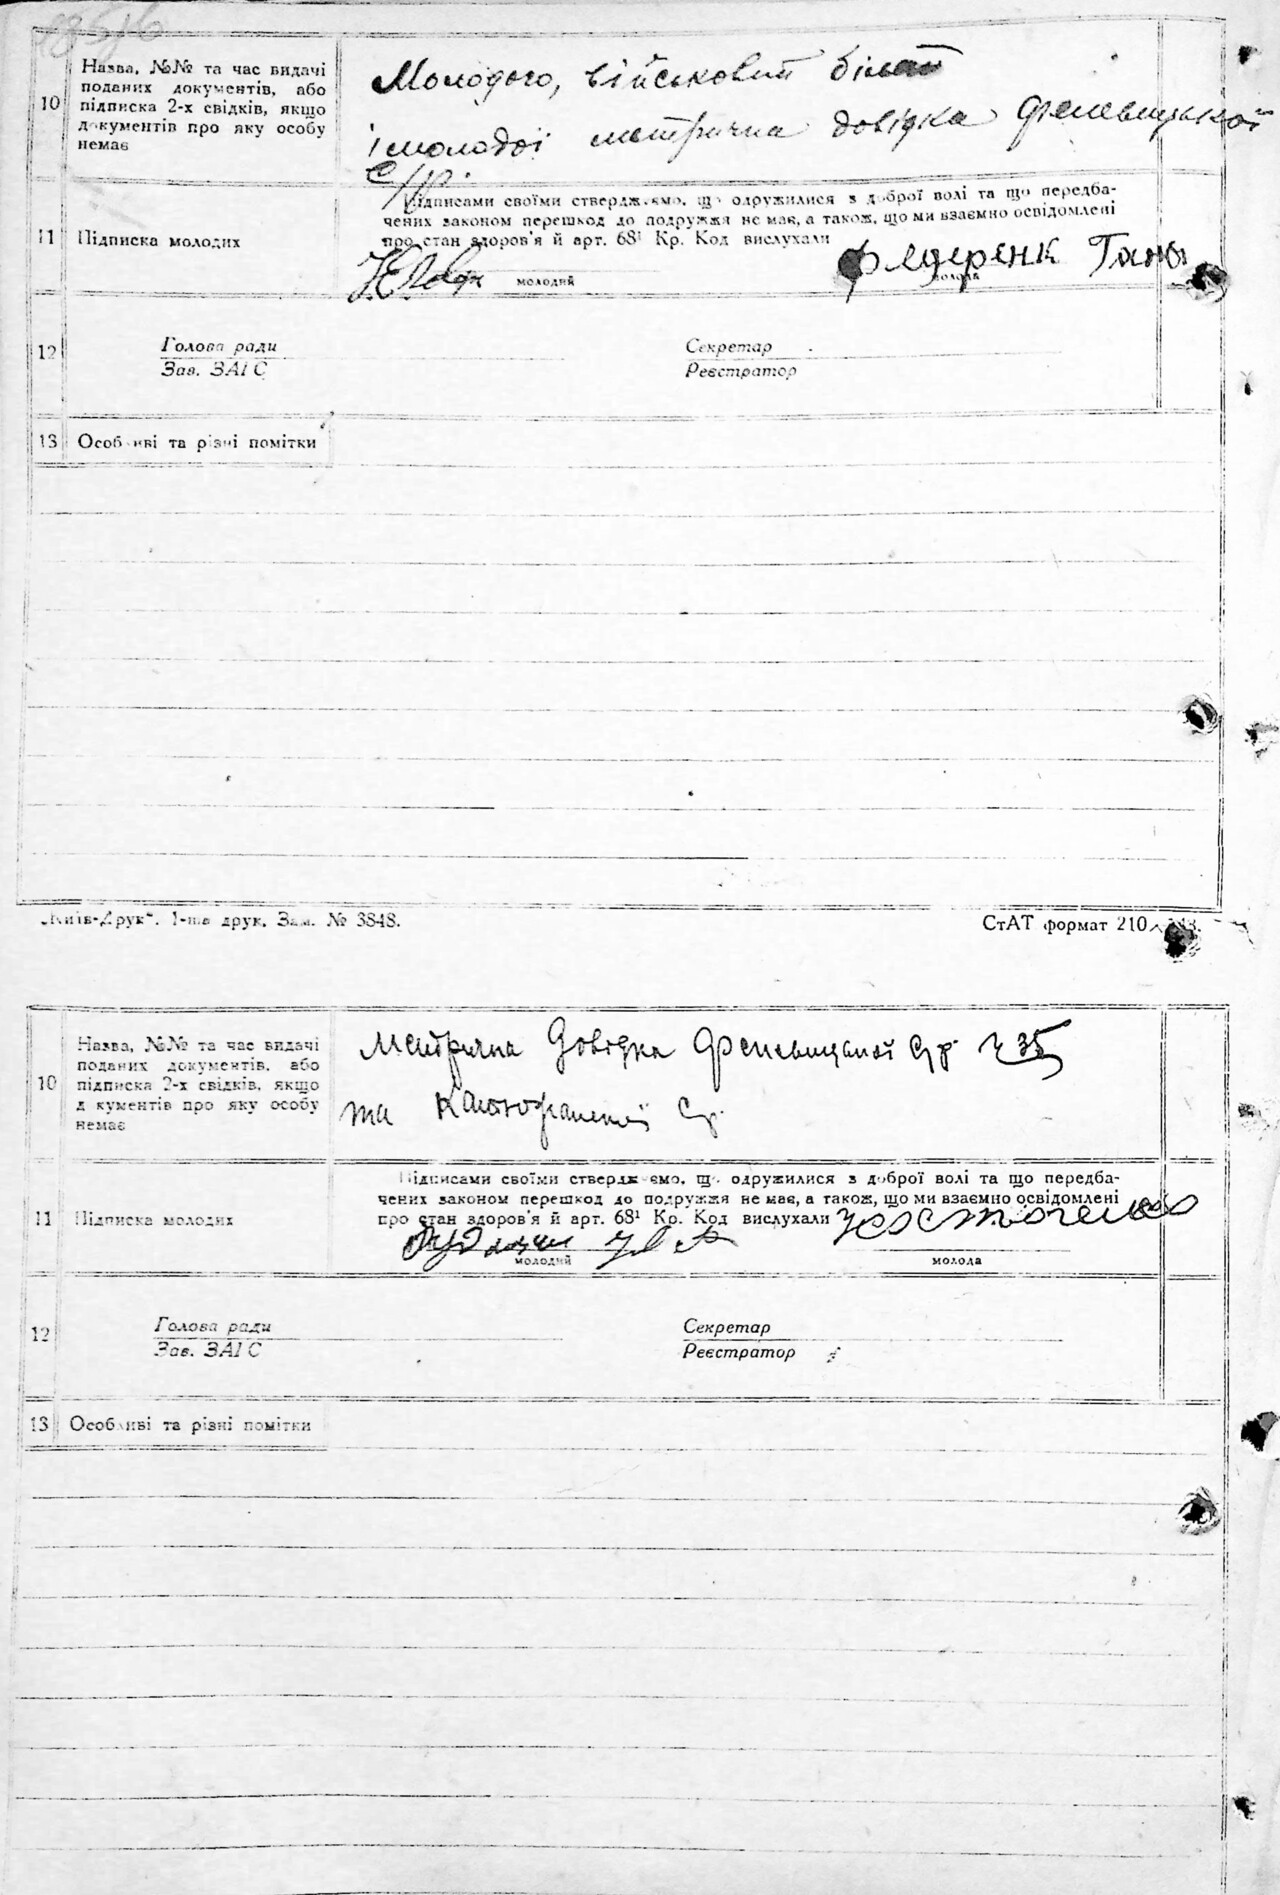 10 Назва, №№ та час видачі
поданих документів, або
підписка 2-х свідків, якщо
документів про яку особу
немає
Молодого, військовий білет
і молодої метрична довідка
с/р.
11 Підписка молодих
Підписами своїми стверджуємо, що одружилися з доброї волі та що передба-
чених законом перешкод до подружжя не має, а також, що ми взаємно освідомлені
про стан здоров'я й арт. 68¹ Кр. Код вислухали
Федеренк Ганы
молодий
молода
12 Голова ради
Зав. ЗАГС
Секретар
Реєстратор
13 Особливі та різні помітки
„Київ-Друк“. 1-ша друк. Зам. № 3848.
СтАТ формат 210
10 Назва, №№ та час видачі
поданих документів, або
підписка 2-х свідків, якщо
документів про яку особу
немає
Метрична Довідка с/р. 35
та с/р.
11 Підписка молодих
Підписами своїми стверджуємо, що одружилися з доброї волі та що передба-
чених законом перешкод до подружжя не має, а також, що ми взаємно освідомлені
про стан здоров'я й арт. 68¹ Кр. Код вислухали
молодий
молода
12 Голова ради
Зав. ЗАГС
Секретар
Реєстратор
13 Особливі та різні помітки